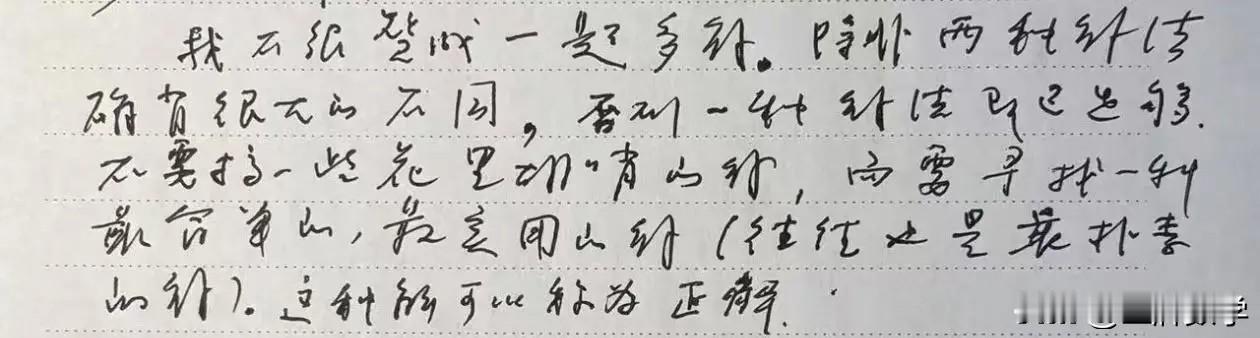 我不很赞成一题多解。除非两种解法
确有很大的不同,否则一种解法即已足够.
不要搞一些花里胡哨的解,而需寻找一种
最简单的,最实用的解(往往也是最朴素
的解)。这种解可以称为正解.